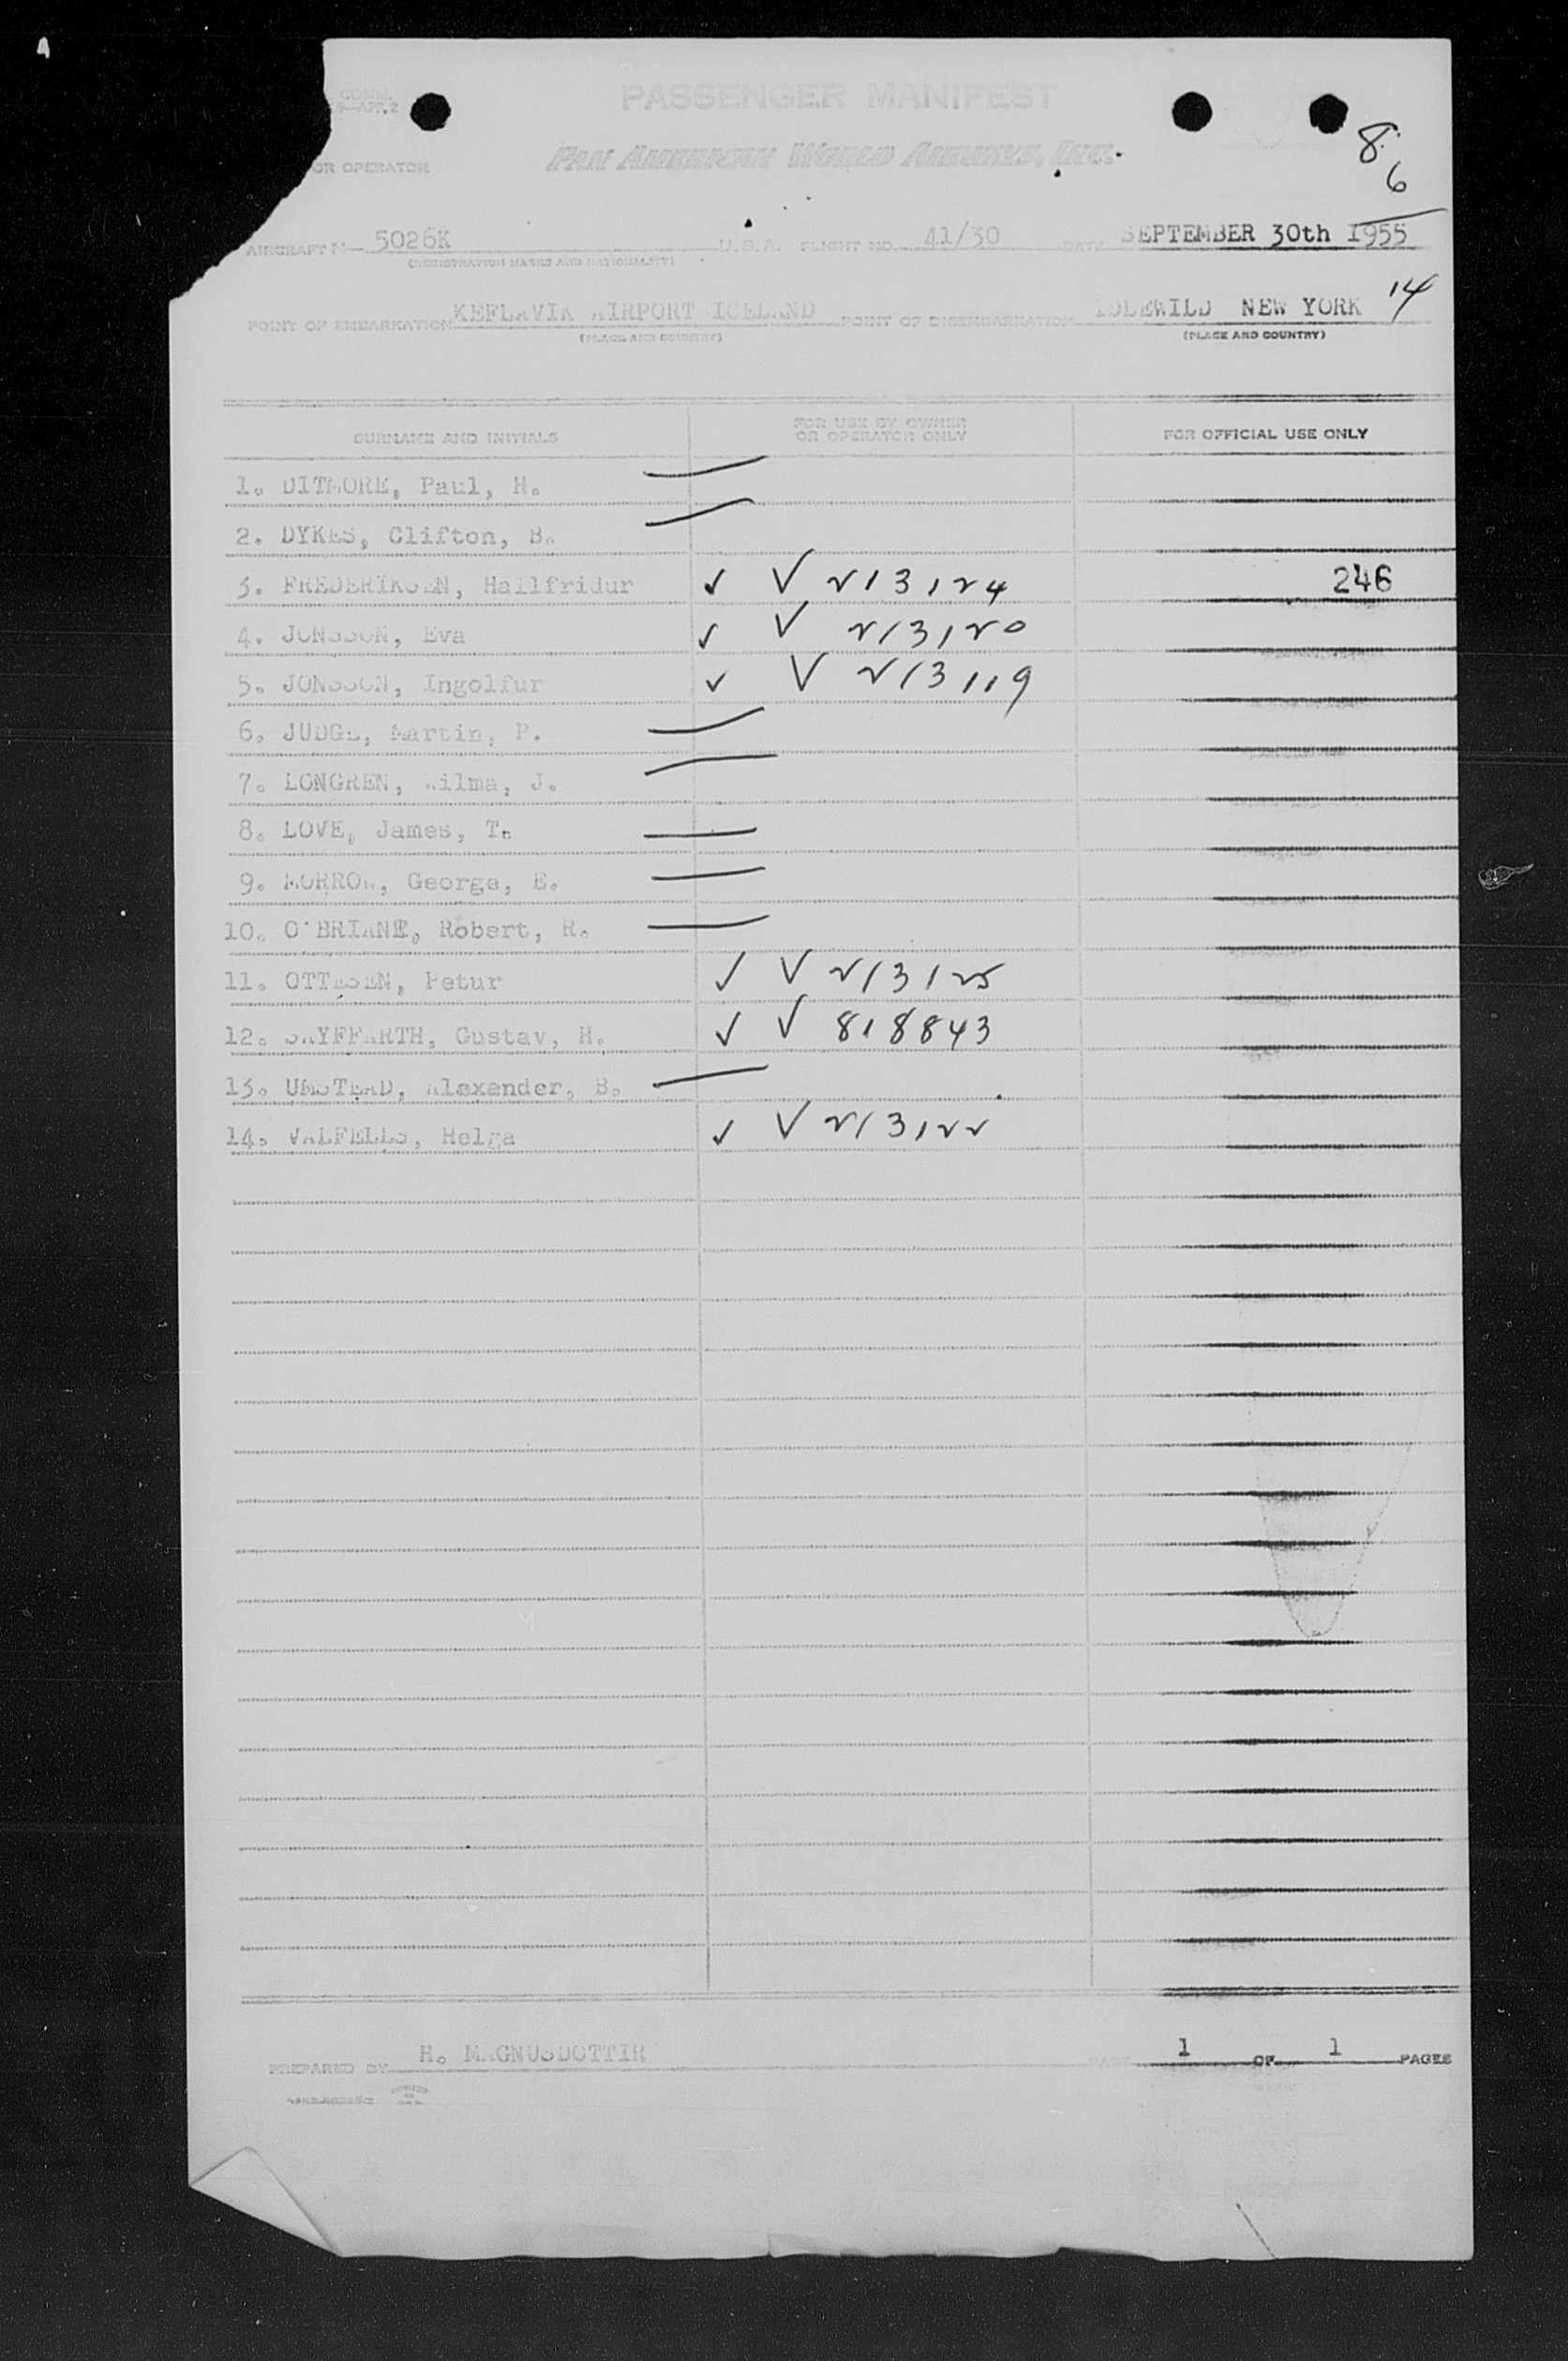 PASSENGER MANIFEST
PAN AMERICAN WORLD AIRWAYS, INC.
OR OPERATOR
8
6
14
AIRCRAFT N— 5026K U.S.A. FLIGHT NO. 41/30 DATE SEPTEMBER 30th 1955
(REGISTRATION MARKS AND NATIONALITY)
POINT OF EMBARKATION KEFLAVIK AIRPORT ICELAND POINT OF DISEMBARKATION IDLEWILD NEW YORK
(PLACE AND COUNTRY) (PLACE AND COUNTRY)
SURNAME AND INITIALS FOR USE BY OWNER OR OPERATOR ONLY FOR OFFICIAL USE ONLY
1. DITMORE, Paul, H. —
2. DYKES, Clifton, B. —
3. FREDERIKSEN, Hallfridur ✓ ✓ 213124 246
4. JONSSON, Eva ✓ ✓ 213120
5. JONSSON, Ingolfur ✓ ✓ 213119
6. JUDGE, Martin, P. —
7. LONGREN, Wilma, J. —
8. LOVE, James, T. —
9. MORROW, George, E. —
10. O'BRIANE, Robert, R. —
11. OTTESEN, Petur ✓ ✓ 213125
12. SAYFFARTH, Gustav, H. ✓ ✓ 818843
13. UMSTEAD, Alexander, B. —
14. VALFELLS, Helga ✓ ✓ 213122
PREPARED BY H. MAGNUSDOTTIR PAGE 1 OF 1 PAGES